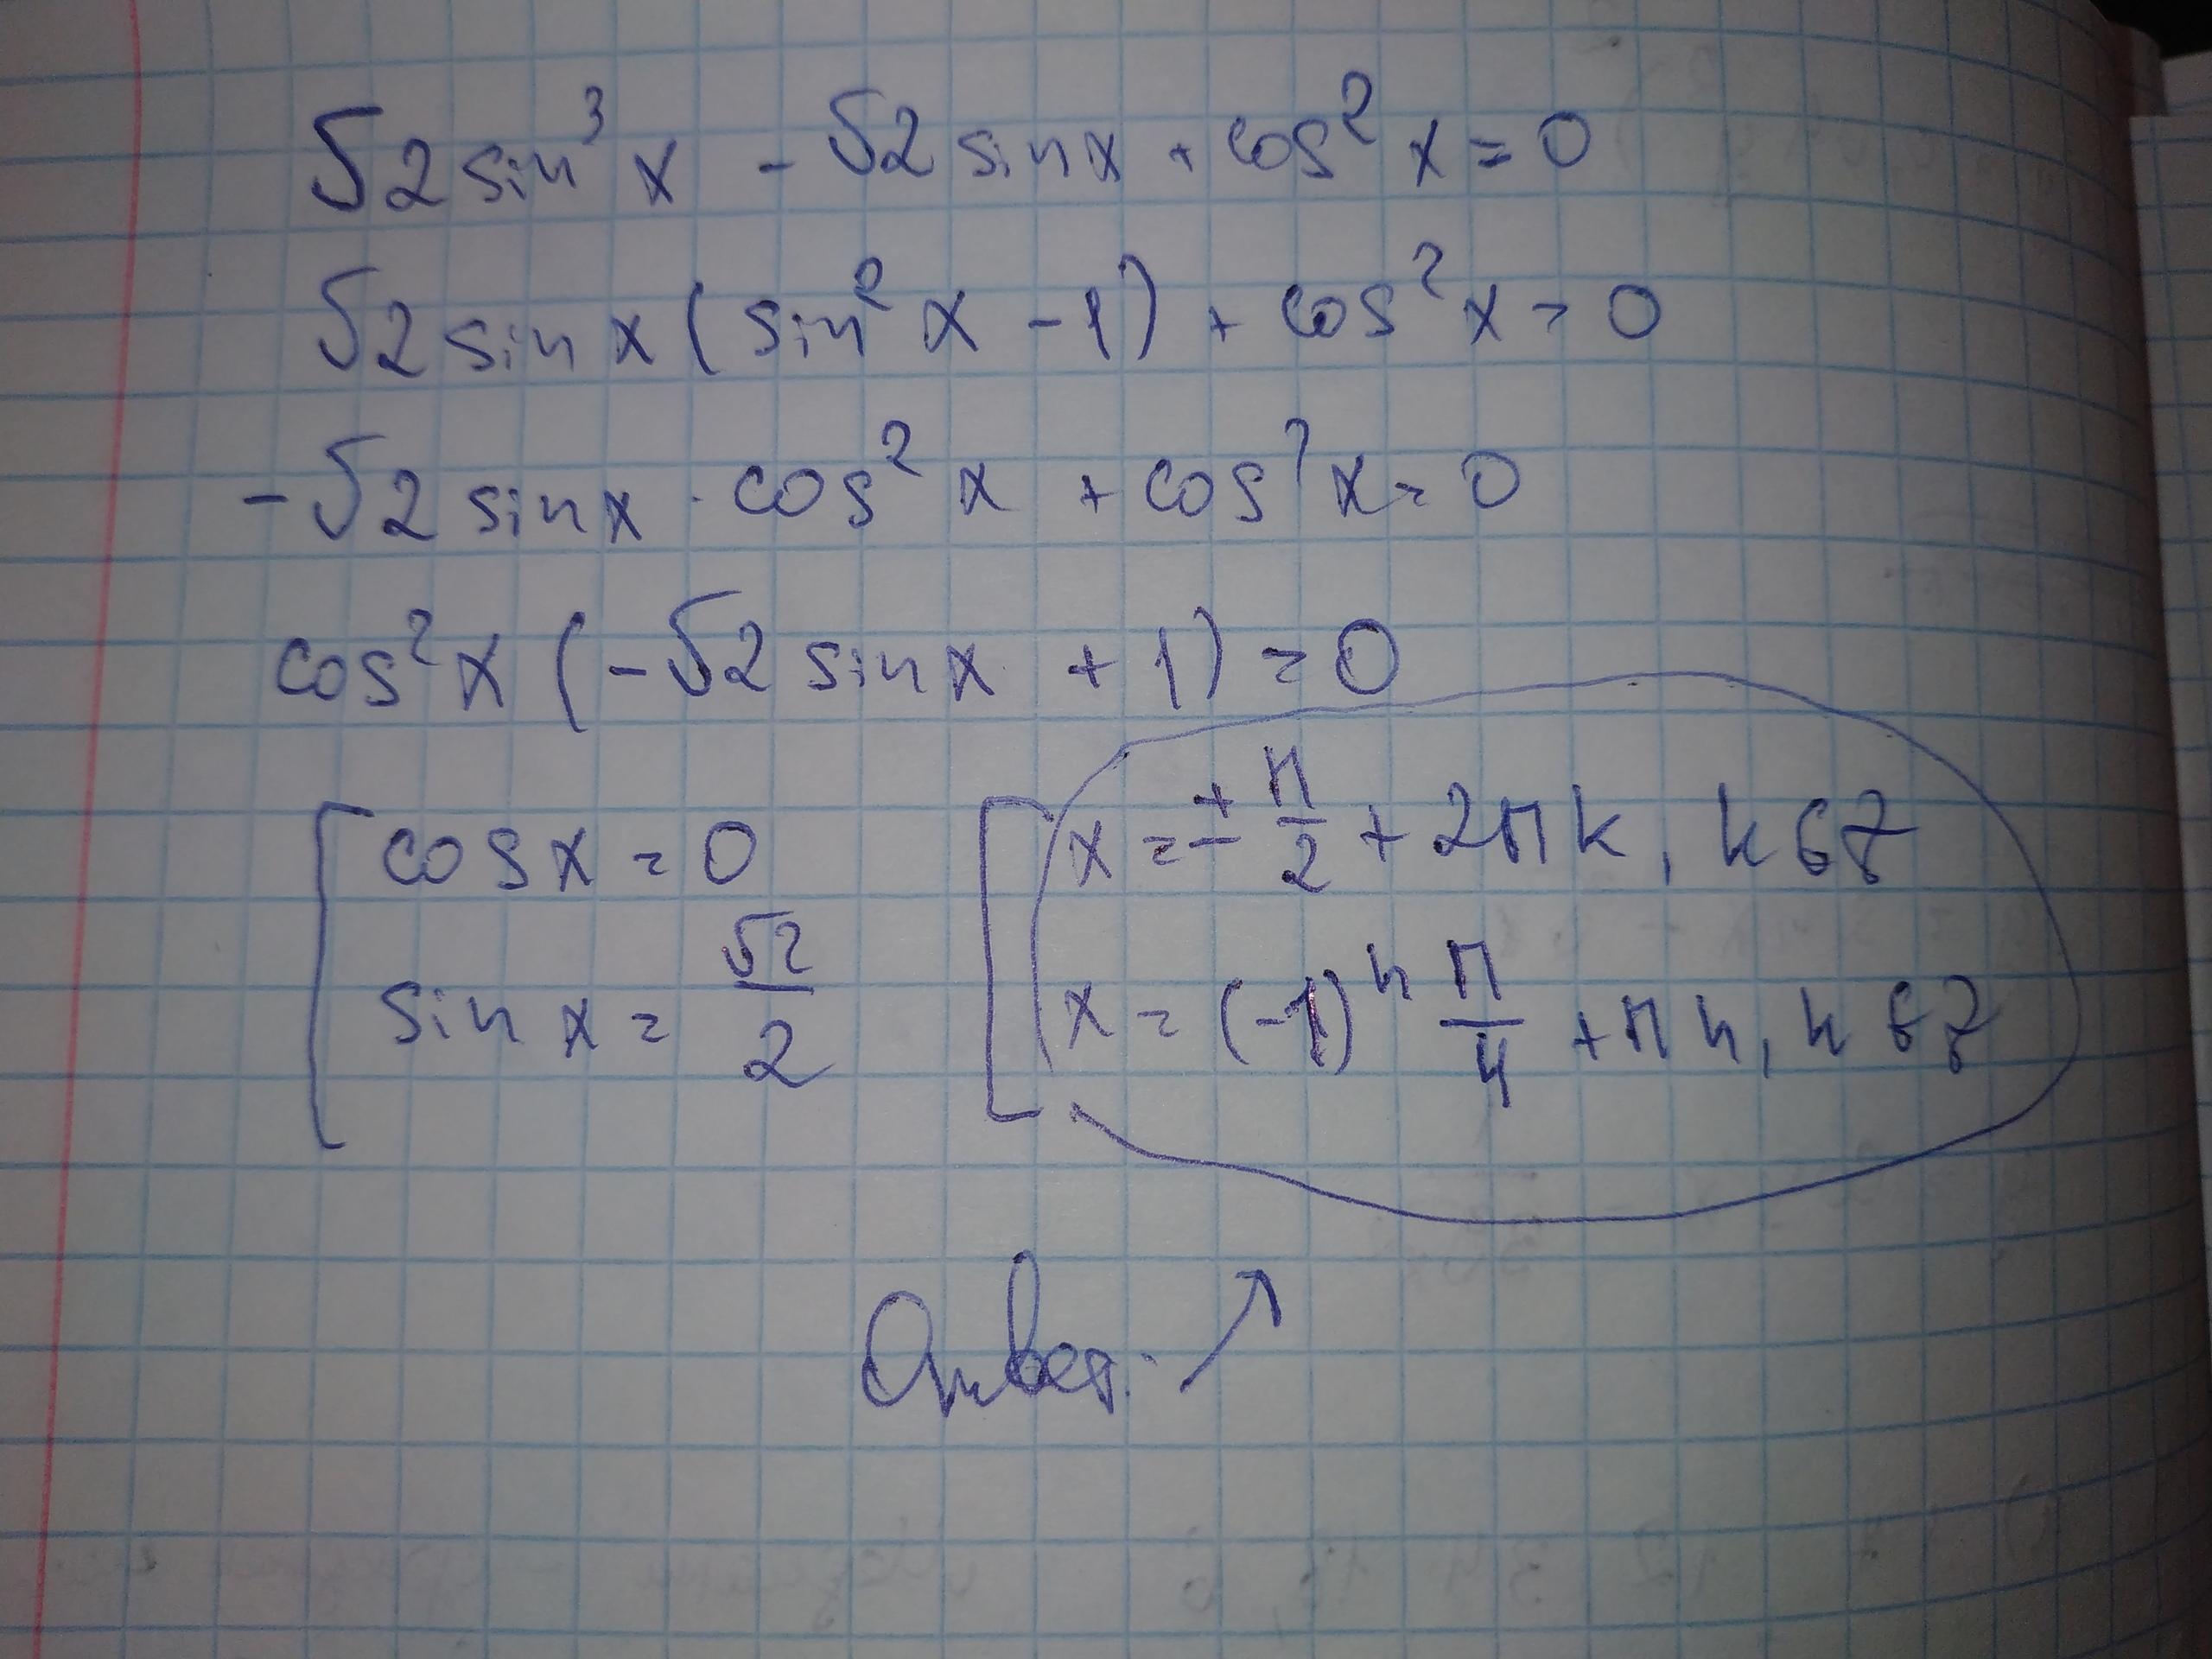 √2 sin³x - √2 sinx + cos²x = 0
√2 sinx (sin²x - 1) + cos²x = 0
-√2 sinx · cos²x + cos²x = 0
cos²x (-√2 sinx + 1) = 0
[ cosx = 0 [ x = ± π/2 + 2πk, k ∈ Z
sinx = √2/2 x = (-1)ⁿ π/4 + πn, n ∈ Z
Ответ: ↗